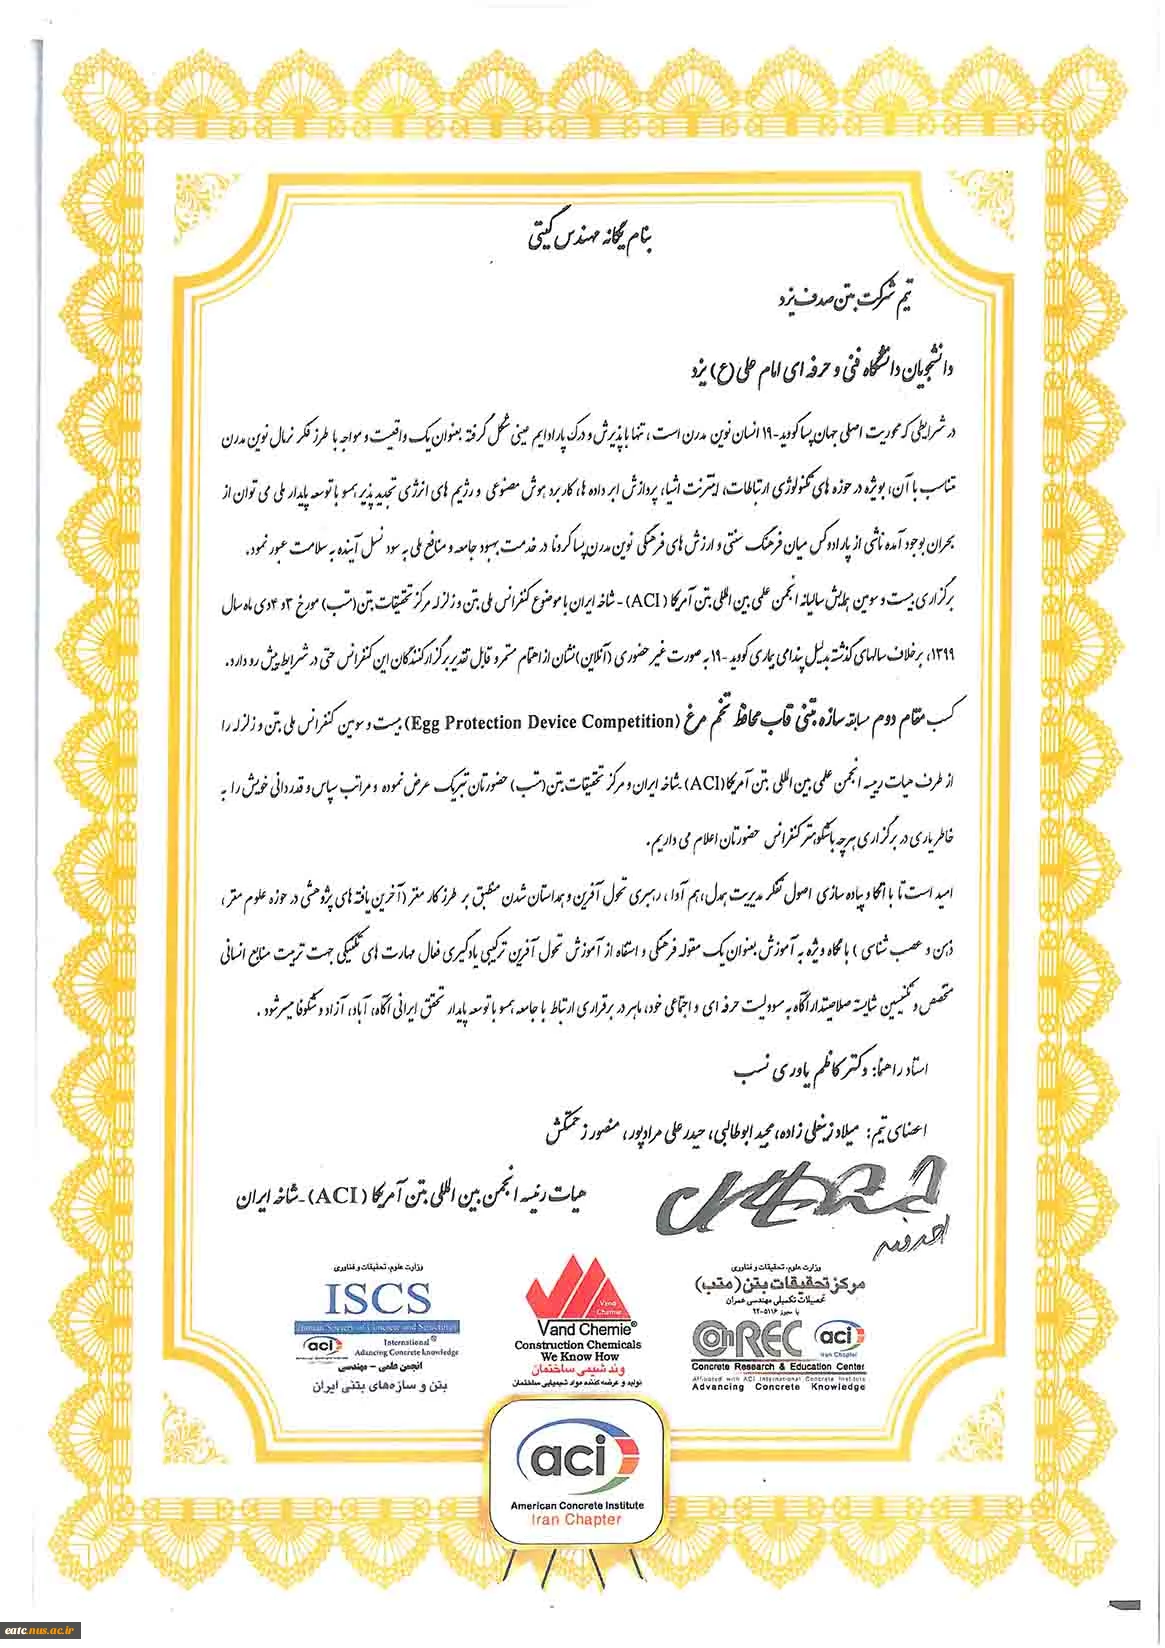 بنام یگانه مهندس گیتی
تیم شرکت بتن صدف یزد
دانشجویان دانشگاه فنی و حرفه ای امام علی (ع) یزد
در شرایطی که محوریت اصلی جهان پساکووید-۱۹ انسان نوین مدرن است، تنها با پذیرش و درک پارادایم عینی شکل گرفته بعنوان یک واقعیت و مواجه با طرز فکر نرمال نوین مدرن
متناسب با آن، بویژه در حوزه های تکنولوژی ارتباطات، اینترنت اشیا، پردازش ابر داده ها، کاربرد هوش مصنوعی و رژیم های انرژی تجدید پذیر همسو با توسعه پایدار ملی می توان از
بحران بوجود آمده ناشی از پارادوکس میان فرهنگ سنتی و ارزش های فرهنگی نوین مدرن پساکرونا در خدمت بهبود جامعه و منافع ملی به سود نسل آینده به سلامت عبور نمود.
برگزاری بیست و سومین همایش سالیانه انجمن علمی بین المللی بتن آمریکا (ACI) - شاخه ایران با موضوع کنفرانس ملی بتن و زلزله مرکز تحقیقات بتن(متب) مورخ ۳و ۴دی ماه سال
۱۳۹۹، برخلاف سالهای گذشته بدلیل پندامی بیماری کووید -۱۹ به صورت غیر حضوری (آنلاین) نشان از اهتمام مستمر و قابل تقدیر برگزارکنندگان این کنفرانس حتی در شرایط پیش رو دارد.
کسب مقام دوم مسابقه سازه بتنی قاب محافظ تخم مرغ (Egg Protection Device Competition) بیست و سومین کنفرانس ملی بتن و زلزله را
از طرف هیات رییسه انجمن علمی بین المللی بتن آمریکا(ACI)-شاخه ایران و مرکز تحقیقات بتن(متب) حضورتان تبریک عرض نموده و مراتب سپاس و قدردانی خویش را به
خاطر یاری در برگزاری هرچه باشکوهتر کنفرانس حضورتان اعلام می داریم.
امید است تا با اتکا و پیاده سازی اصول تفکر مدیریت همدل، هم آوا، رهبری تحول آفرین و همداستان شدن منطبق بر طرز کار مغز (آخرین یافته های پژوهشی در حوزه علوم مغز،
ذهن و عصب شناسی) با نگاه ویژه به آموزش بعنوان یک مقوله فرهنگی و استفاه از آموزش تحول آفرین ترکیبی یادگیری فعال مهارت های تکنیکی جهت تربیت منابع انسانی
متخصص و تکنیسین شایسته صلاحیتدار آگاه به مسوولیت حرفه ای و اجتماعی خود، ماهر در برقراری ارتباط با جامعه همسو با توسعه پایدار تحقق ایرانی آگاه، آباد، آزاد و شکوفا میسر شود.
استاد راهنما: دکتر کاظم یاوری نسب
اعضای تیم: میلاد زینعلی زاده، مجید ابوطالبی، حیدر علی مرادپور، منصور زحمتکش
هیات رئیسه انجمن بین المللی بتن آمریکا (ACI)-شاخه ایران
وزارت علوم، تحقیقات و فناوری
مرکز تحقیقات بتن (متب)
تحصیلات تکمیلی مهندسی عمران
با مجوز ۲۲-۵۱۱۶
ConREC
aci
Iran Chapter
Concrete Research & Education Center
Affiliated with ACI International Concrete Institute
Advancing Concrete Knowledge
Vand
Chemie
Vand Chemie®
Construction Chemicals
We Know How
وند شیمی ساختمان
تولید و عرضه کننده مواد شیمیایی ساختمان
وزارت علوم، تحقیقات و فناوری
ISCS
Iranian Society of Concrete and Structures
aci
International®
Advancing Concrete knowledge
انجمن علمی - مهندسی
بتن و سازه‌های بتنی ایران
aci
American Concrete Institute
Iran Chapter
eatc.nus.ac.ir